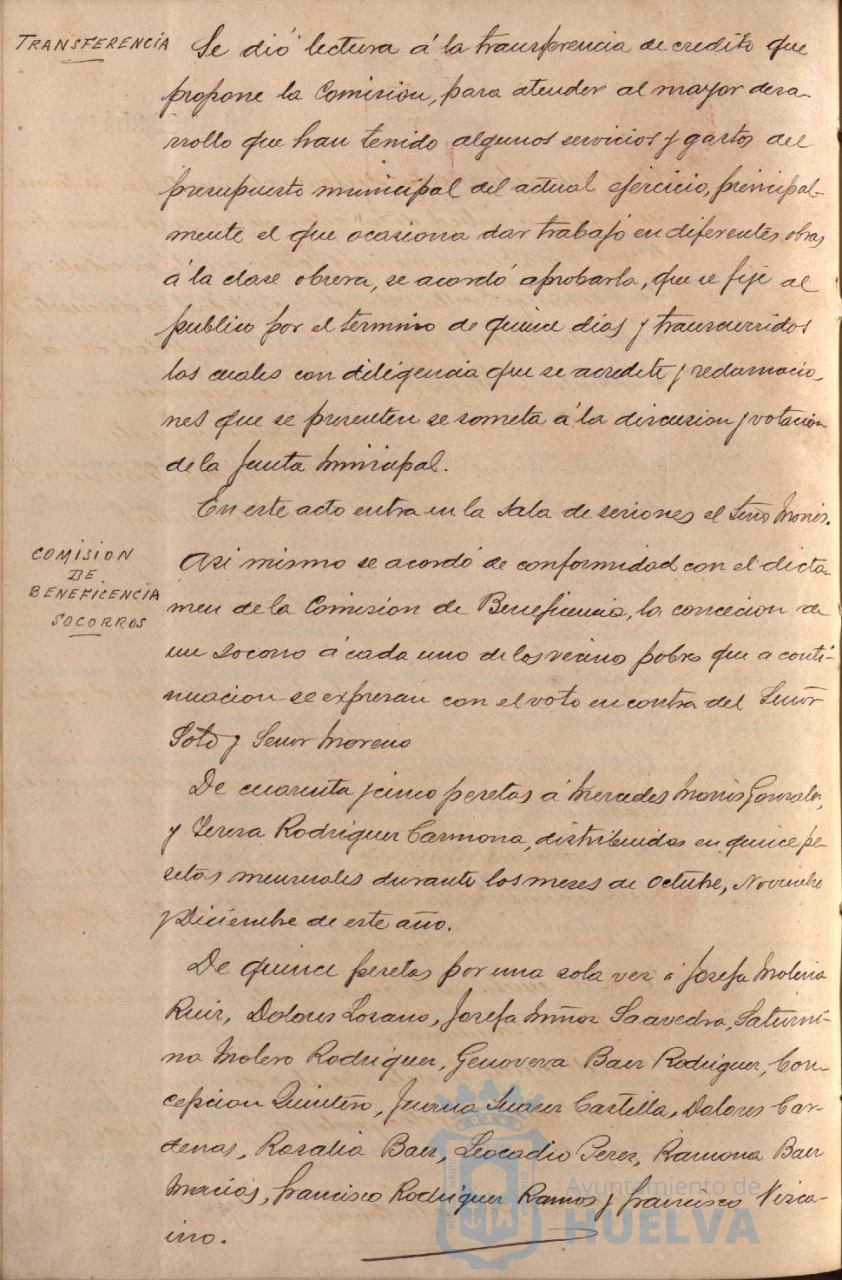 TRANSFERENCIA
Se dió lectura á la transferencia de credito que
propone la Comision, para atender al mayor desa-
rrollo que han tenido algunos servicios y gastos del
presupuesto municipal del actual ejercicio, principal-
mente el que ocasiona dar trabajo en diferentes obras
á la clase obrera, se acordó aprobarla, que se fije al
publico por el termino de quince dias y transcurridos
los cuales con diligencia que se acredite y reclamacio-
nes que se presenten se someta á la discusion y votacion
de la Junta Municipal.
En este acto entra en la Sala de sesiones el Señor Monis.
COMISION
DE
BENEFICENCIA
SOCORROS
Asi mismo se acordó de conformidad con el dicta-
men de la Comision de Beneficencia, la concecion de
un socorro á cada uno de los vecinos pobres que a conti-
nuacion se expresan con el voto en contra del Señor
Soto y Señor Moreno
De cuarenta y cinco pesetas á Mercedes Monis Gonzalez,
y Teresa Rodriguez Carmona, distribuidas en quince pe-
setas mensuales durante los meses de Octubre, Noviembre
y Diciembre de este año.
De quince pesetas por una sola vez á Josefa Molina
Ruiz, Dolores Lozano, Josefa Muñoz Saavedra, Saturni-
na Molero Rodriguez, Genoveva Baez Rodriguez, Con-
cepcion Quintero, Juana Suarez Castilla, Dolores Car-
denas, Rosalia Baez, Leocadio Perez, Ramona Baez
Macias, Francisco Rodriguez Ramos y Francisco Vizca-
ino.
Ayuntamiento de
HUELVA